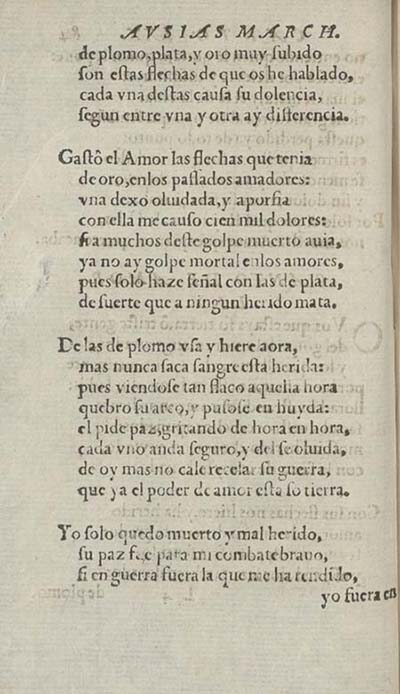 AVSIAS MARCH.
de plomo, plata, y oro muy ſubido
ſon eſtas flechas de que os he hablado,
cada vna deſtas cauſa ſu dolencia,
ſegun entre vna y otra ay differencia.
Gaſtô el Amor las flechas que tenia
de oro, enlos paſſados amadores:
vna dexo oluidada, y aporfia
con ella me cauſo cien mil dolores:
ſi a muchos deſte golpe muerto auia,
ya no ay golpe mortal enlos amores,
pues ſolo haze ſeñal con las de plata,
de ſuerte que a ningun herido mata.
De las de plomo vſa y hiere aora,
mas nunca ſaca ſangre eſta herida:
pues viendoſe tan flaco aquella hora
quebro ſu arco, y puſoſe en huyda:
el pide paz, gritando de hora en hora,
cada vno anda ſeguro, y del ſe oluida,
de oy mas no cale recelar ſu guerra,
que ya el poder de amor eſta ſo tierra.
Yo ſolo quedo muerto y mal herido,
ſu paz fue para mi combate brauo,
ſi en guerra fuera la que me ha rendido,
yo fuera en